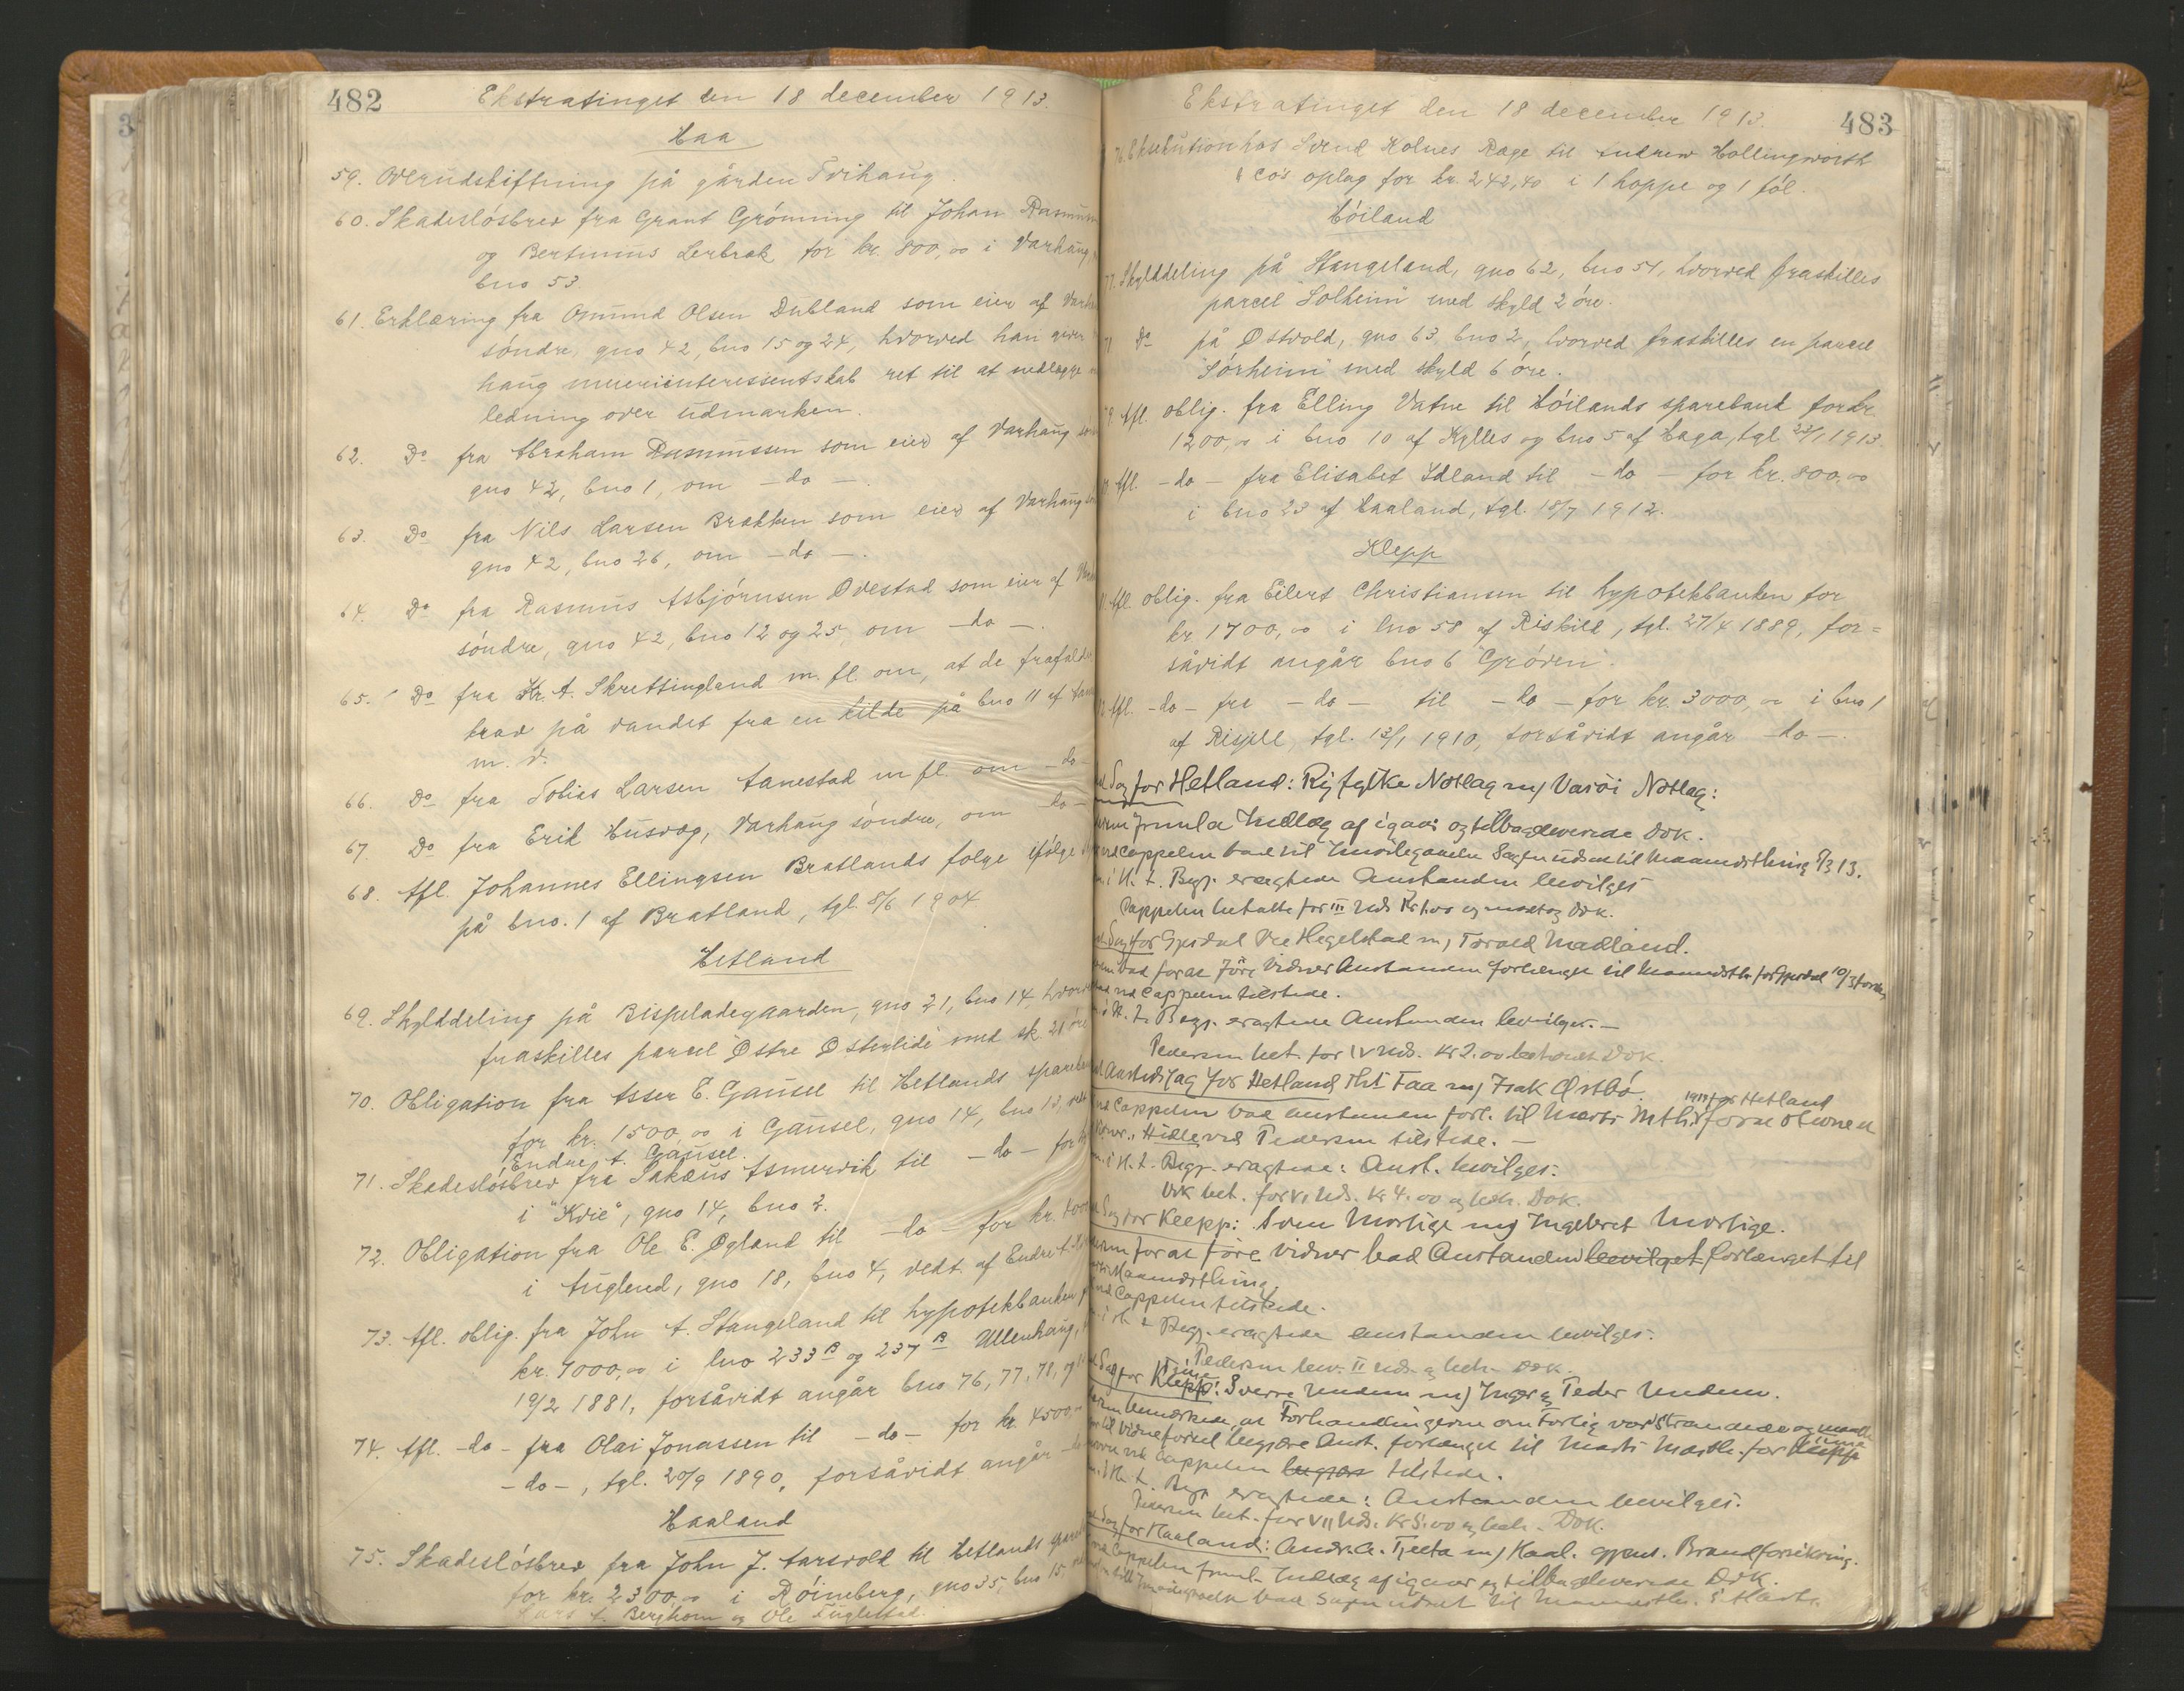 482
Ekstratinget den 18 december 1913.
Haa
59. Overudskiftning på gården Tvihaug.
60. Skadesløsbrev fra Grant Grønning til Johan Rasmus
og Bertinius Lerbrak for kr. 800,00 i Varhaug,
bno 53
61. Erklæring fra Omund Olsen Dubland som eier af Varh
søndre, gno 42, bno 15 og 24, hvorved han giver
haug meieriinteressentskab ret til at nedlægge
ledning over udmarken.
62. Do fra Abraham Rasmussen som eier af Varhaug
gno 42, bno 1, om -do-.
63. Do fra Nils Larsen Brakken som eier af Varhaug
gno 42, bno 26, om -do-.
64. Do fra Rasmus Asbjørnsen Ovestad som eier af
søndre, gno 42, bno 12 og 25, om -do-.
65. Do fra Kr. A. Skrettingland m. fl. om, at de frafalder
krav på vandet fra en kilde på bno 11 af
m. v.
66. Do fra Tobias Larsen Aanestad m fl. om -do-
67. Do fra Erik Husvæg, Varhaug søndre, om -do-
68. Afl. Johannes Ellingsen Bratlands folge ifølge
på bno. 1 af Bratland, tgl. 8/6 1904
Hetland
69. Skylddeling på Bispeladegaarden, gno 21, bno 14, hvor
fraskilles parcel Østre Østerlide med sk. 21 øre
70. Obligation fra Asser E. Gausel til Hetlands spareban
for kr. 1500,00 i Gausel, gno 14, bno 13,
Endre A. Gausel.
71. Skadesløsbrev fra Sakæus Asmervik til -do- for
i "Kvie", gno 14, bno 2.
72. Obligation fra Ole E. Øgland til -do- for kr.
i Auglend, gno 18, bno 4, vedt. af Endre
73. Afl. oblig. fra John A. Stangeland til hypotekbanken
kr. 7000,00 i lno 233 B og 237 B Ullenhaug,
19/2 1881, forsåvidt angår bno 76, 77, 78, og
74. Afl. -do- fra Olai Jonassen til -do- for kr. 4500,
-do-, tgl. 20/9 1890, forsåvidt angår
Haaland
75. Skadesløsbrev fra John J. Aarsvold til Hetlands
for kr. 2300,00 i Røineberg, gno 35, bno 15,
Lars A. Berghom og Ole Fuglestad.
483
Ekstratinget den 18 december 1913.
76. Eksekution hos Svend Kolnes Rage til Andrew Hollingworth
& Co's oplag for kr. 242,40 i 1 hoppe og 1 føl.
Høiland
77. Skylddeling på Stangeland, gno 62, bno 51, hvorved fraskilles
parcel "Solheim" med skyld 2 øre.
Do på Østvold, gno 63, bno 2, hvorved fraskilles en parcel
"Sørheim" med skyld 6 øre.
Afl. oblig. fra Elling Vatne til Høilands sparebank for kr.
1200,00 i bno 10 af Kylles og bno 5 af Haga, tgl. 23/1 1913.
Afl. -do- fra Elisabet Idland til -do- for kr. 800,00
i bno 23 af Haaland, tgl. 18/7 1912.
Klepp
Afl. oblig. fra Eilert Christiansen til hypotekbanken for
kr 1700,00 i lno 58 af Riskild, tgl. 27/4 1889, for=
såvidt angår bno 6 "Grøden".
Afl. -do- fra -do- til -do- for kr. 3000,00 i bno 1
af Risjell, tgl. 13/1 1910, forsåvidt angår -do-.
Sag for Hetland: Ryfylke Notlag m/ Varøi Notlag:
freml. Indlæg af igaar og tilbageleverede Dok.
Cappelen bad til Imødegaaelse Sagen udsat til Maanedsthing
i N. L. Begj. eragtede Anstanden bevilges
Cappelen betalte for III Uds. Kr 1.00 og modtog Dok.
Sag for Gjesdal Ole Hegelstad m/ Torvald Madland.
bad for at føre Vidner Anstanden forlænget til Maanedsth. for Gjesdal 10/3
ved Cappelen tilstede.
i N. L. Begj. eragtede Anstanden bevilges.-
Pedersen bet. for IV Uds. Kr 2.00 beh. Dok.
for Hetland Faa m/ Isak Østbø.
Cappelen bad Anstanden forl. til Marts Mth. 1914 for Hetland
Hidle ved Pedersen tilstede.-
i N. L. Begj. eragtede: Anst. bevilges.
bet. for VI Uds. Kr 4.00 og beh. Dok.
Sag for Klepp: Sven Morlige m/ Ingebret Morlige.
for at føre Vidner bad Anstanden bevilget forlænget til
Maanedsthing.
Cappelen tilstede.
Begj. eragtede Anstanden bevilges.
Pedersen bet. II Uds. og beh. Dok.
Sag for Klepp: Time Sverre Undem m/ Inger og Peder Undem.
bemærkede, at Forhandlingerne om Forlig var strandede og maatte
til Vidneførsel begjære Anst. forlænget til Marts Maanedsth. for Klepp Time
ved Cappelen begjær tilstede.
Begj. eragtede: Anstanden bevilges.
Pedersen bet. for VII Uds. Kr 5.00 og beh. Dok.
Sag for Haaland: Andr. A. Tjelta m/ Haal. gjens. Brandforsikring.
Cappelen freml. Indlæg af igaar og tilbageleverede Dok.
bad Sagen udsat til Maanedsth. i Marts.